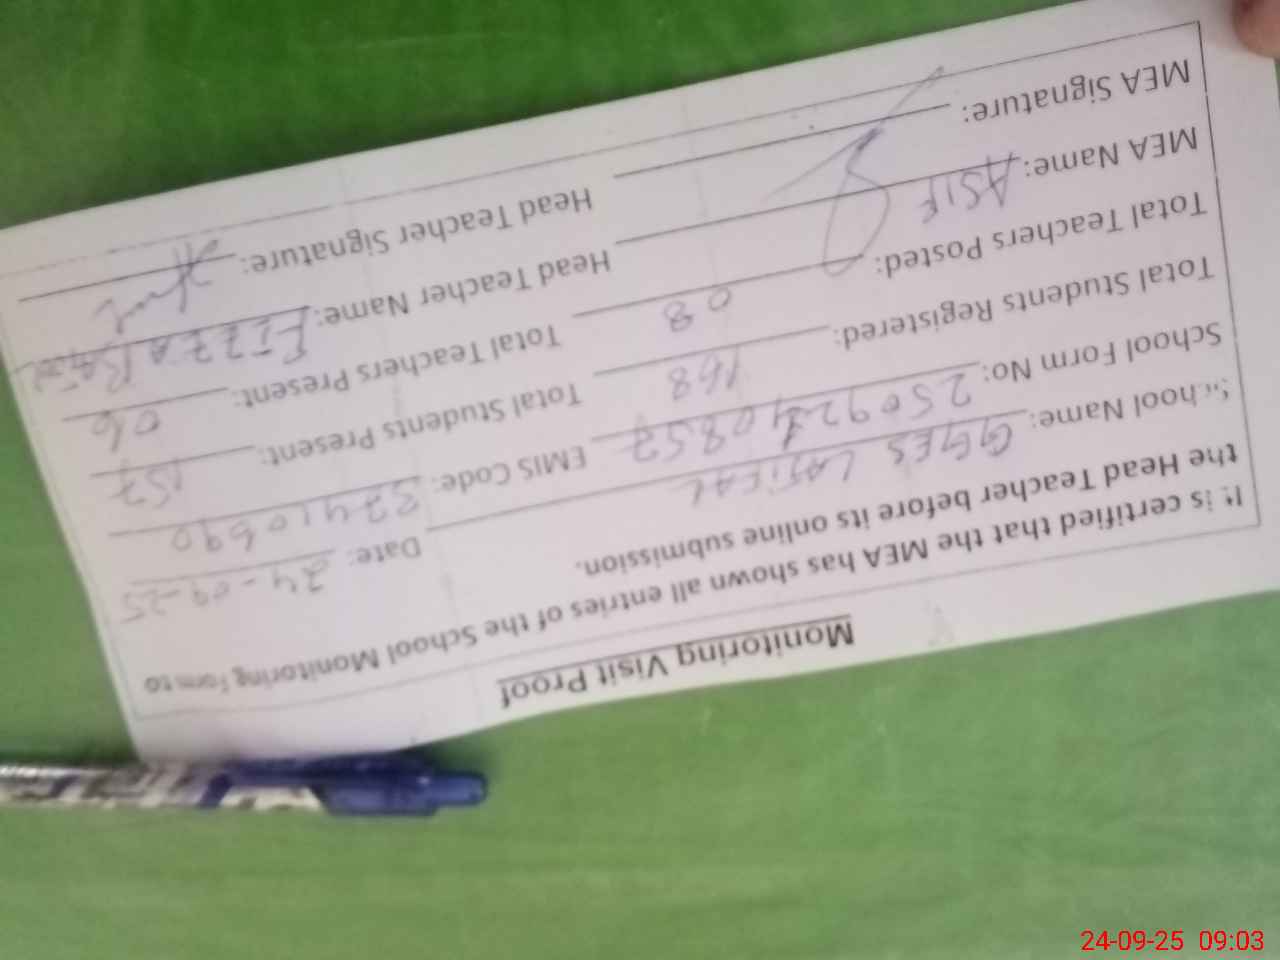 Monitoring Visit Proof
It is certified that the MEA has shown all entries of the School Monitoring Form to
the Head Teacher before its online submission.
Date: 24-09-25
School Name: GGES LASIFAL
School Form No: 250924 0857 EMIS Code: 37410690
Total Students Registered: 168 Total Students Present: 157
Total Teachers Posted: 08 Total Teachers Present: 06
MEA Name: ASIF Head Teacher Name: FIZZA Batool
MEA Signature: Head Teacher Signature:
24-09-25 09:03